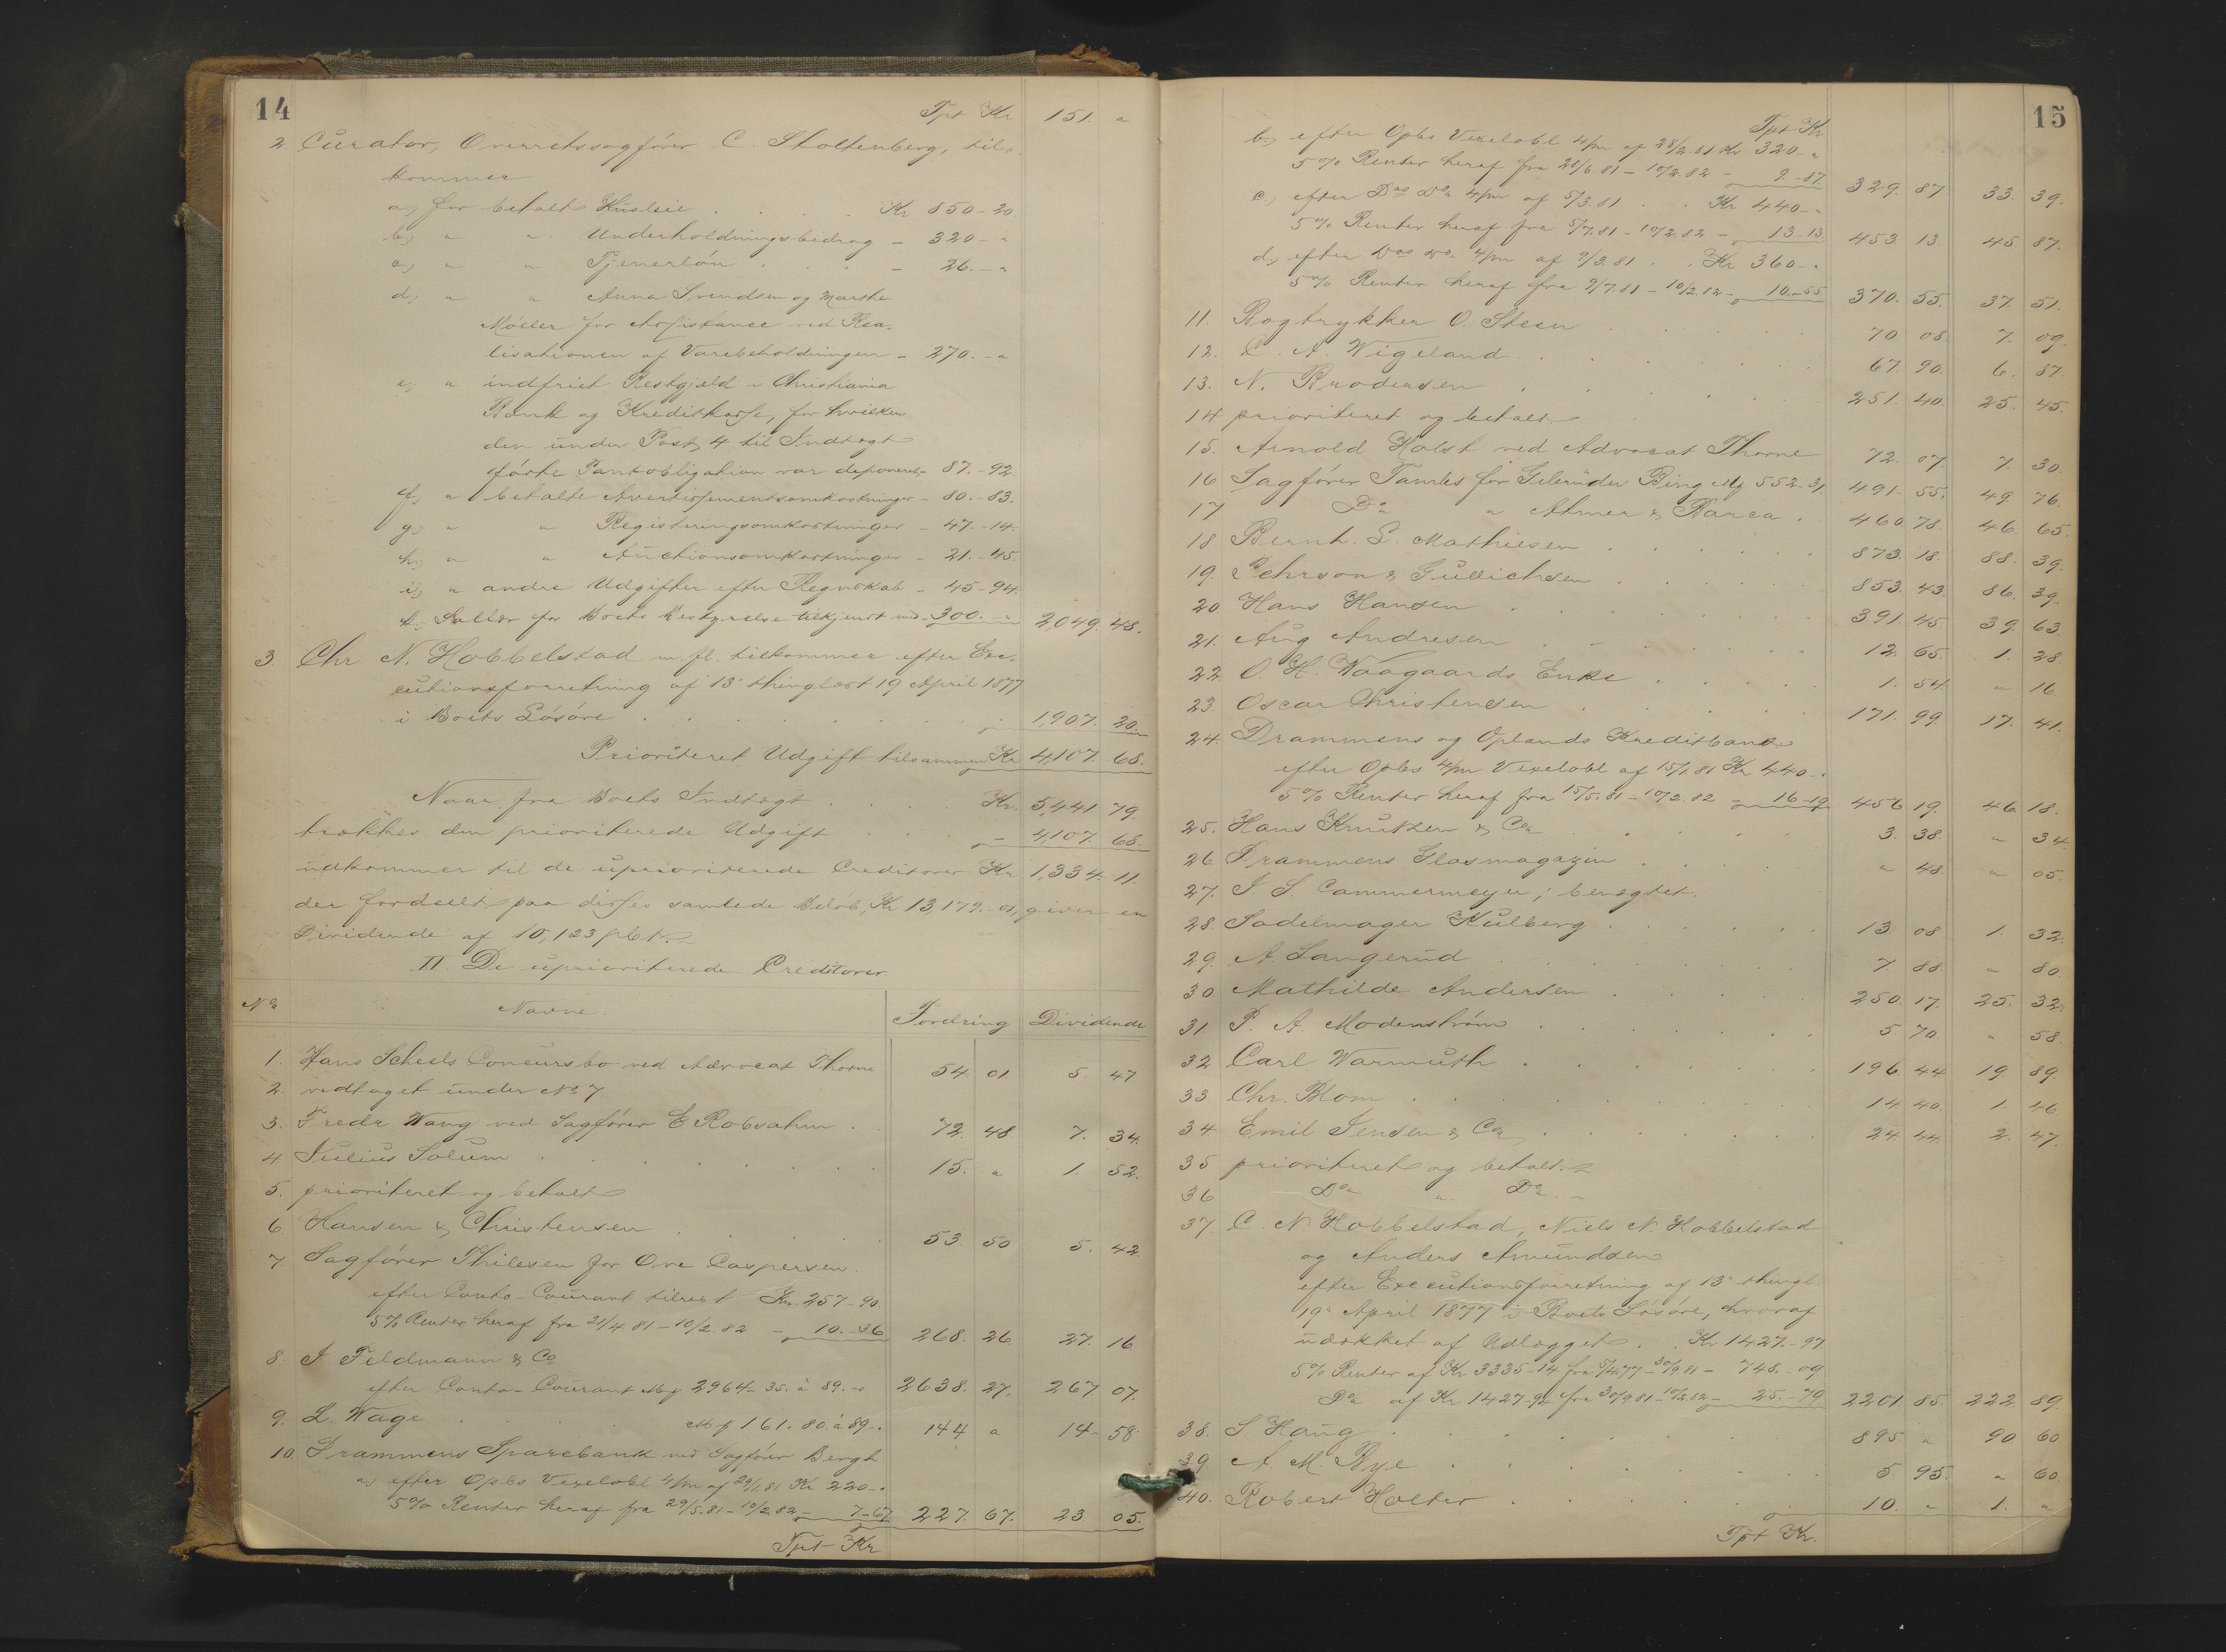 14
Tpt Kr 151. "
2 Curator, Overretssagfører C. Stoltenberg, til-
kommer
a, for betalt Husleie . . . . Kr 850-20.
b, " " Underholdningsbidrag - 320-"
c, " " Tjenerløn . . . - 26.-"
d, " " Anna Svendsen og Marthe
Møller for Assistance ved Rea-
lisationen af Varebeholdningen - 270.-"
e, " indfriet Restgjæld i Christiania
Bank og Kreditkasse, for hvilken
den under Post 4 til Indtægt
førte Pantobligation var deponeret - 87.-92.
f, " betalte Avertissementsomkostninger - 80.-83.
g, " " Registreringsomkostninger - 47.-14.
h, " " Auctionsomkostninger - 21.-45.
i, " andre Udgifter efter Regnskab - 45-94.
k, Sallær for Boets Bestyrelse tilkjendt med - 300.-" 2,049. 48.
3. Chr. N. Hobbelstad m. fl. tilkommer efter Exe-
cutionsforretning af 13' thinglæst 19 April 1877
i Boets Løsøre . . . . . . . . 1,907. 20.
Prioriteret Udgift tilsammen Kr 4,107. 68.
Naar fra Boets Indtægt . . . . Kr. 5,441 79.
trækkes den prioriterede Udgift . . . - 4,107. 68.
udkommer til de uprioriterede Creditorer Kr 1,334. 11.
der fordeelt paa disses samlede Beløb, Kr 13,179.-01, giver en
Dividende af 10,123 pCt.
II. De uprioriterede Creditorer
No Navne. Fordring Dividende
1. Hans Scheels Concursbo ved Advocat Thorne 54. 01 5. 47
2. vedtaget under No 7
3. Fredr Wang ved Sagfører E Robsahm . . 72. 48 7. 34.
4 Julius Solum . . . . . . . 15. " 1. 52.
5. prioriteret og betalt
6 Hansen & Christensen . . . . . 53 50 5. 42
7 Sagfører Thilesen for Ove Caspersen.
efter Conto-Courant tilrest Kr. 257-90.
5% Renter heraf fra 21/4.81-10/2.82 - 10.-36 268. 26 27. 16
8. I Feldmann & Co
efter Conto-Courant Mf 2964-35. à 89.-" 2638. 27. 267 07.
9. L. Wage . . . . Mf 161. 80. à 89-" 144 " 14- 58
10 Drammens Sparebank ved Sagfører Bergh
a, efter Opbs Vexelobl 4/m af 29/1.81 Kr 220-"
5% Renter heraf fra 29/5.81-10/2.82 - 7-67 227. 67. 23 05.
Tpt Kr
15
Tpt Kr
b, efter Opbs Vexelobl 4/m af 28/2.81 Kr 320-"
5% Renter heraf fra 28/6.81-10/2.82 - 9.-87 329. 87 33. 39.
c, efter Do Do 4/m af 5/3.81 . . Kr 440-"
5% Renter heraf fra 5/7.81-10/2.82 - 13-13 453. 13. 45. 87.
d, efter Do Do 4/m af 9/3.81 . . Kr 360-"
5% Renter heraf fra 9/7.81-10/2.82 - 10.-55 370. 55. 37. 51.
11. Bogtrykker O. Steen . . . . . 70 08. 7. 09.
12. C. A. Wigeland . . . . . . . 67. 90. 6. 87.
13. N. Brodersen . . . . . . . 251. 40. 25. 45.
14 prioriteret og betalt
15. Arnold Holst ved Advocat Thorne 72. 07 7. 30.
16 Sagfører Tambs for Gebrüder Bing Mf 552-31. 491. 55. 49. 76.
17 Do " Almer & Barca . 460 78. 46. 65.
18 Bernh. L. Mathiesen . . . . . 873. 18. 88. 39.
19. Pehrson & Gullichsen . . . . . 853. 43. 86. 39.
20 Hans Hansen . . . . . . . 391. 45. 39. 63.
21. Aug Andresen . . . . . . . 12. 65. 1. 28
22. O. H. Waagaards Enke . . . . . 1. 54. " 16
23. Oscar Christensen . . . . . 171. 99 17. 41.
24. Drammens og Oplands Kreditbank
efter Opbs 4/m Vexelobl af 15/1.81 Kr 440-"
5% Renter heraf fra 15/5.81-10/2.82 - 16-19 456 19. 46. 18.
25. Hans Knutzen & Co . . . . . . 3. 38. " 34
26 Drammens Glasmagazin . . . . . " 48. " 05.
27. I. S. Cammermeyer; benægtet.
28. Sadelmager Kulberg . . . . . . 13. 08 1. 32.
29. A Langerud . . . . . . . 7 88. " 80.
30. Mathilde Andersen . . . . . . 250. 17. 25. 32.
31. P. A. Modenstrøm . . . . . . 5. 70. " 58.
32 Carl Warmuth . . . . . . . 196 44 19. 89.
33 Chr. Blom . . . . . . . . 14 40. 1. 46
34. Emil Jensen & Co . . . . . . 24 44. 2. 47.
35 prioriteret og betalt.
36 Do " Do.
37. C. N. Hobbelstad, Niels N. Hobbelstad
og Anders Amundsen
efter Executionsforretning af 13' thingl.
19' April 1877 i Boets Løsøre, hvoraf
udækket af Udlægget . . Kr 1427.-97
5% Renter af Kr 3335-14 fra 5/4.77-30/9.81 - 748.-09
Do af Kr 1427-97 fra 30/9.81-10/2.82 - 25.-79 2201. 85. 222 89.
38. S Haug . . . . . . . . 895. " 90. 60
39. A. M. Bye . . . . . . . . 5. 95. " 60.
40. Robert Holter . . . . . . . 10. " 1. "
Tpt Kr.